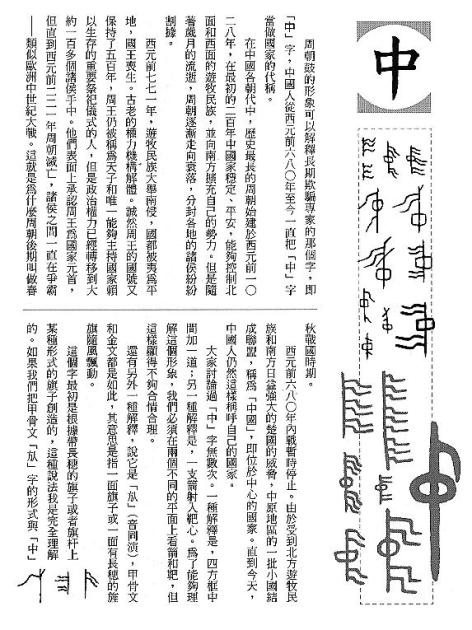 中
周朝鼓的形象可以解釋長期欺騙專家的那個字，即
「中」字，中國人從西元前六八〇年至今一直把「中」字
當做國家的代稱。
在中國各朝代中，歷史最長的周朝始建於西元前一〇
二八年，在最初的二百年中國家穩定、平安，能夠控制北
面和西面的遊牧民族，並向南方擴充自己的勢力。但是隨
著歲月的流逝，周朝逐漸走向衰落，分封各地的諸侯紛紛
割據。
西元前七七一年，遊牧民族大舉南侵，國都被夷爲平
地，國王喪生。古老的權力機構解體。誠然周王的國號又
保持了五百年，周王仍被稱爲天子和唯一能夠主持國家賴
以生存的重要祭祀儀式的人，但是政治權力已經轉移到大
約一百多個諸侯手中。他們表面上承認周王爲國家元首，
但直到西元前二二一年周朝滅亡，諸侯之間一直在爭霸
——類似歐洲中世紀大戰。這就是爲什麼周朝後期叫做春
秋戰國時期。
西元前六八〇年內戰暫時停止。由於受到北方遊牧民
族和南方日益強大的楚國的威脅，中原地區的一批小國結
成聯盟，稱爲「中國」，即位於中心的國家。直到今天，
中國人仍然這樣稱呼自己的國家。
大家討論過「中」字無數次。一種解釋是，四方框中
間加一道；另一種解釋是，一支箭射入靶心。爲了能夠理
解這個形象，我們必須在兩個不同的平面上看箭和靶，但
這樣顯得不夠合情合理。
還有另外一種解釋，說它是「㫃」（音同演），甲骨文
和金文都是如此，其意思是指一面旗子或一面有長穂的旌
旗隨風飄動。
這個字最初是根據帶長穂的旗子或者旗杆上
某種形式的旗子創造的，這種說法我是完全理解
的。如果我們把甲骨文「㫃」字的形式與「中」